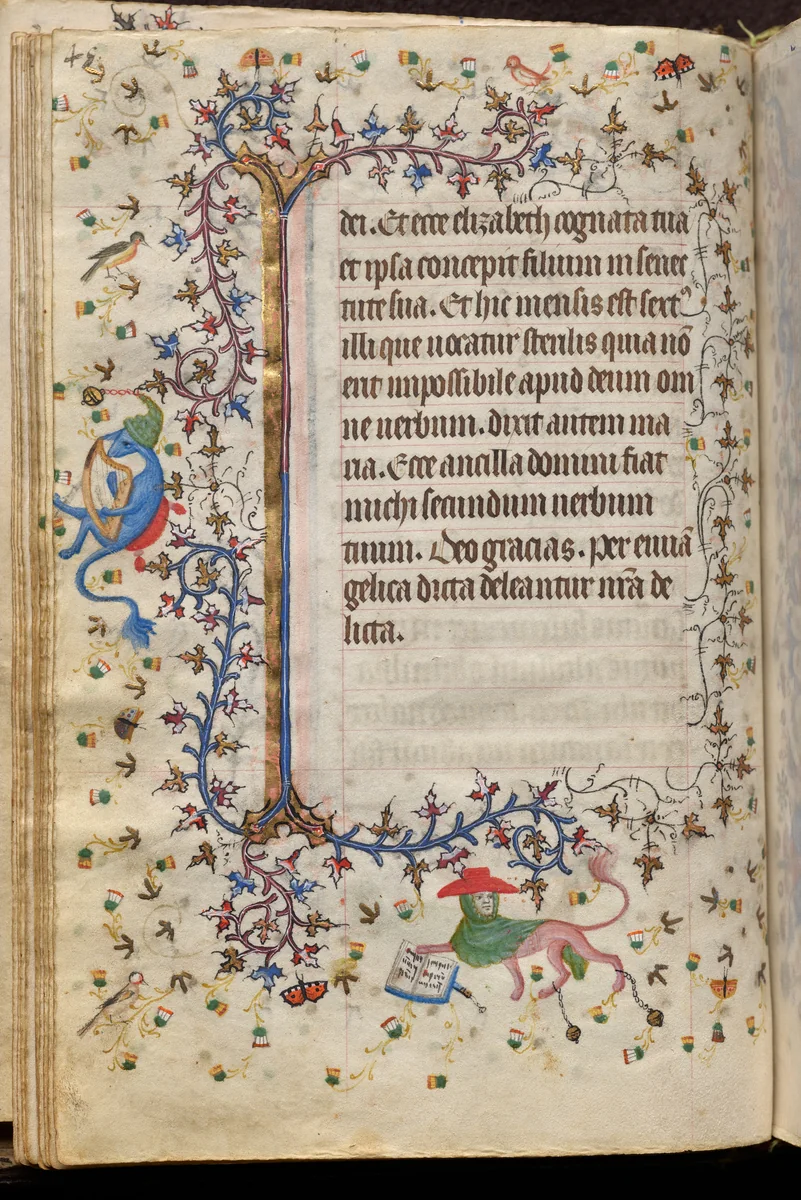 dei. Et ecce elizabeth cognata tua
et ipsa concepit filium in senec
tute sua. Et hic mensis est sextꝰ
illi que uocatur sterilis quia nō
erit impossibile apud deum om
ne uerbum. dixit autem ma
ria. Ecce ancilla domini fiat
michi secundum uerbum
tuum. Deo gracias. Per euuā
gelica dicta deleantur nr̄a de
licta.